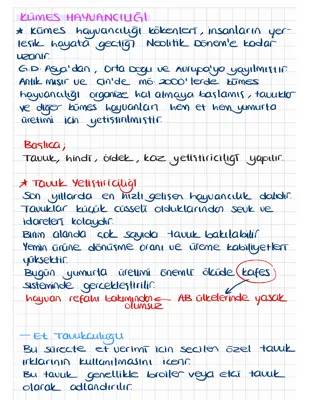 KÜMES HAYVANCILIĞI
* Kümes hayvancılığı kökenleri, insanların yer-
leşik hayata geçtiği Neolitik Dönem'e kadar
uzanır.
G.D Asya'dan, Orta Doğu ve Avrupa'ya yayılmıştır.
Antik mısır ve Çin'de mö 2000'lerde kümes
hayvancılığı organize hal almaya başlamış, tavuklar
ve diğer kümes hayvanları hem et hem yumurta
üretimi için yetiştirilmiştir.
Başlıca;
Tavuk, hindi, ördek, kaz yetiştiriciliği yapılır.
* Tavuk Yetiştiriciliği
Son yıllarda en hızlı gelişen hayvancılık dalıdır.
Tavuklar küçük cüsseli olduklarından sevk ve
idareleri kolaydır.
Birim alanda çok sayıda tavuk bakılabilir.
Yemin ürüne dönüşme oranı ve üreme kabiliyetleri
yüksektir.
Bugün yumurta üretimi önemli ölçüde kafes
sisteminde gerçekleştirilir.
hayvan refahı bakımından olumsuz AB ülkelerinde yasak
- Et Tavukçuluğu
Bu süreçte et verimi için seçilen özel tavuk
ırklarının kullanılmasını içerir.
Bu tavuk genellikle broiler veya etçi tavuk
olarak adlandırılır.